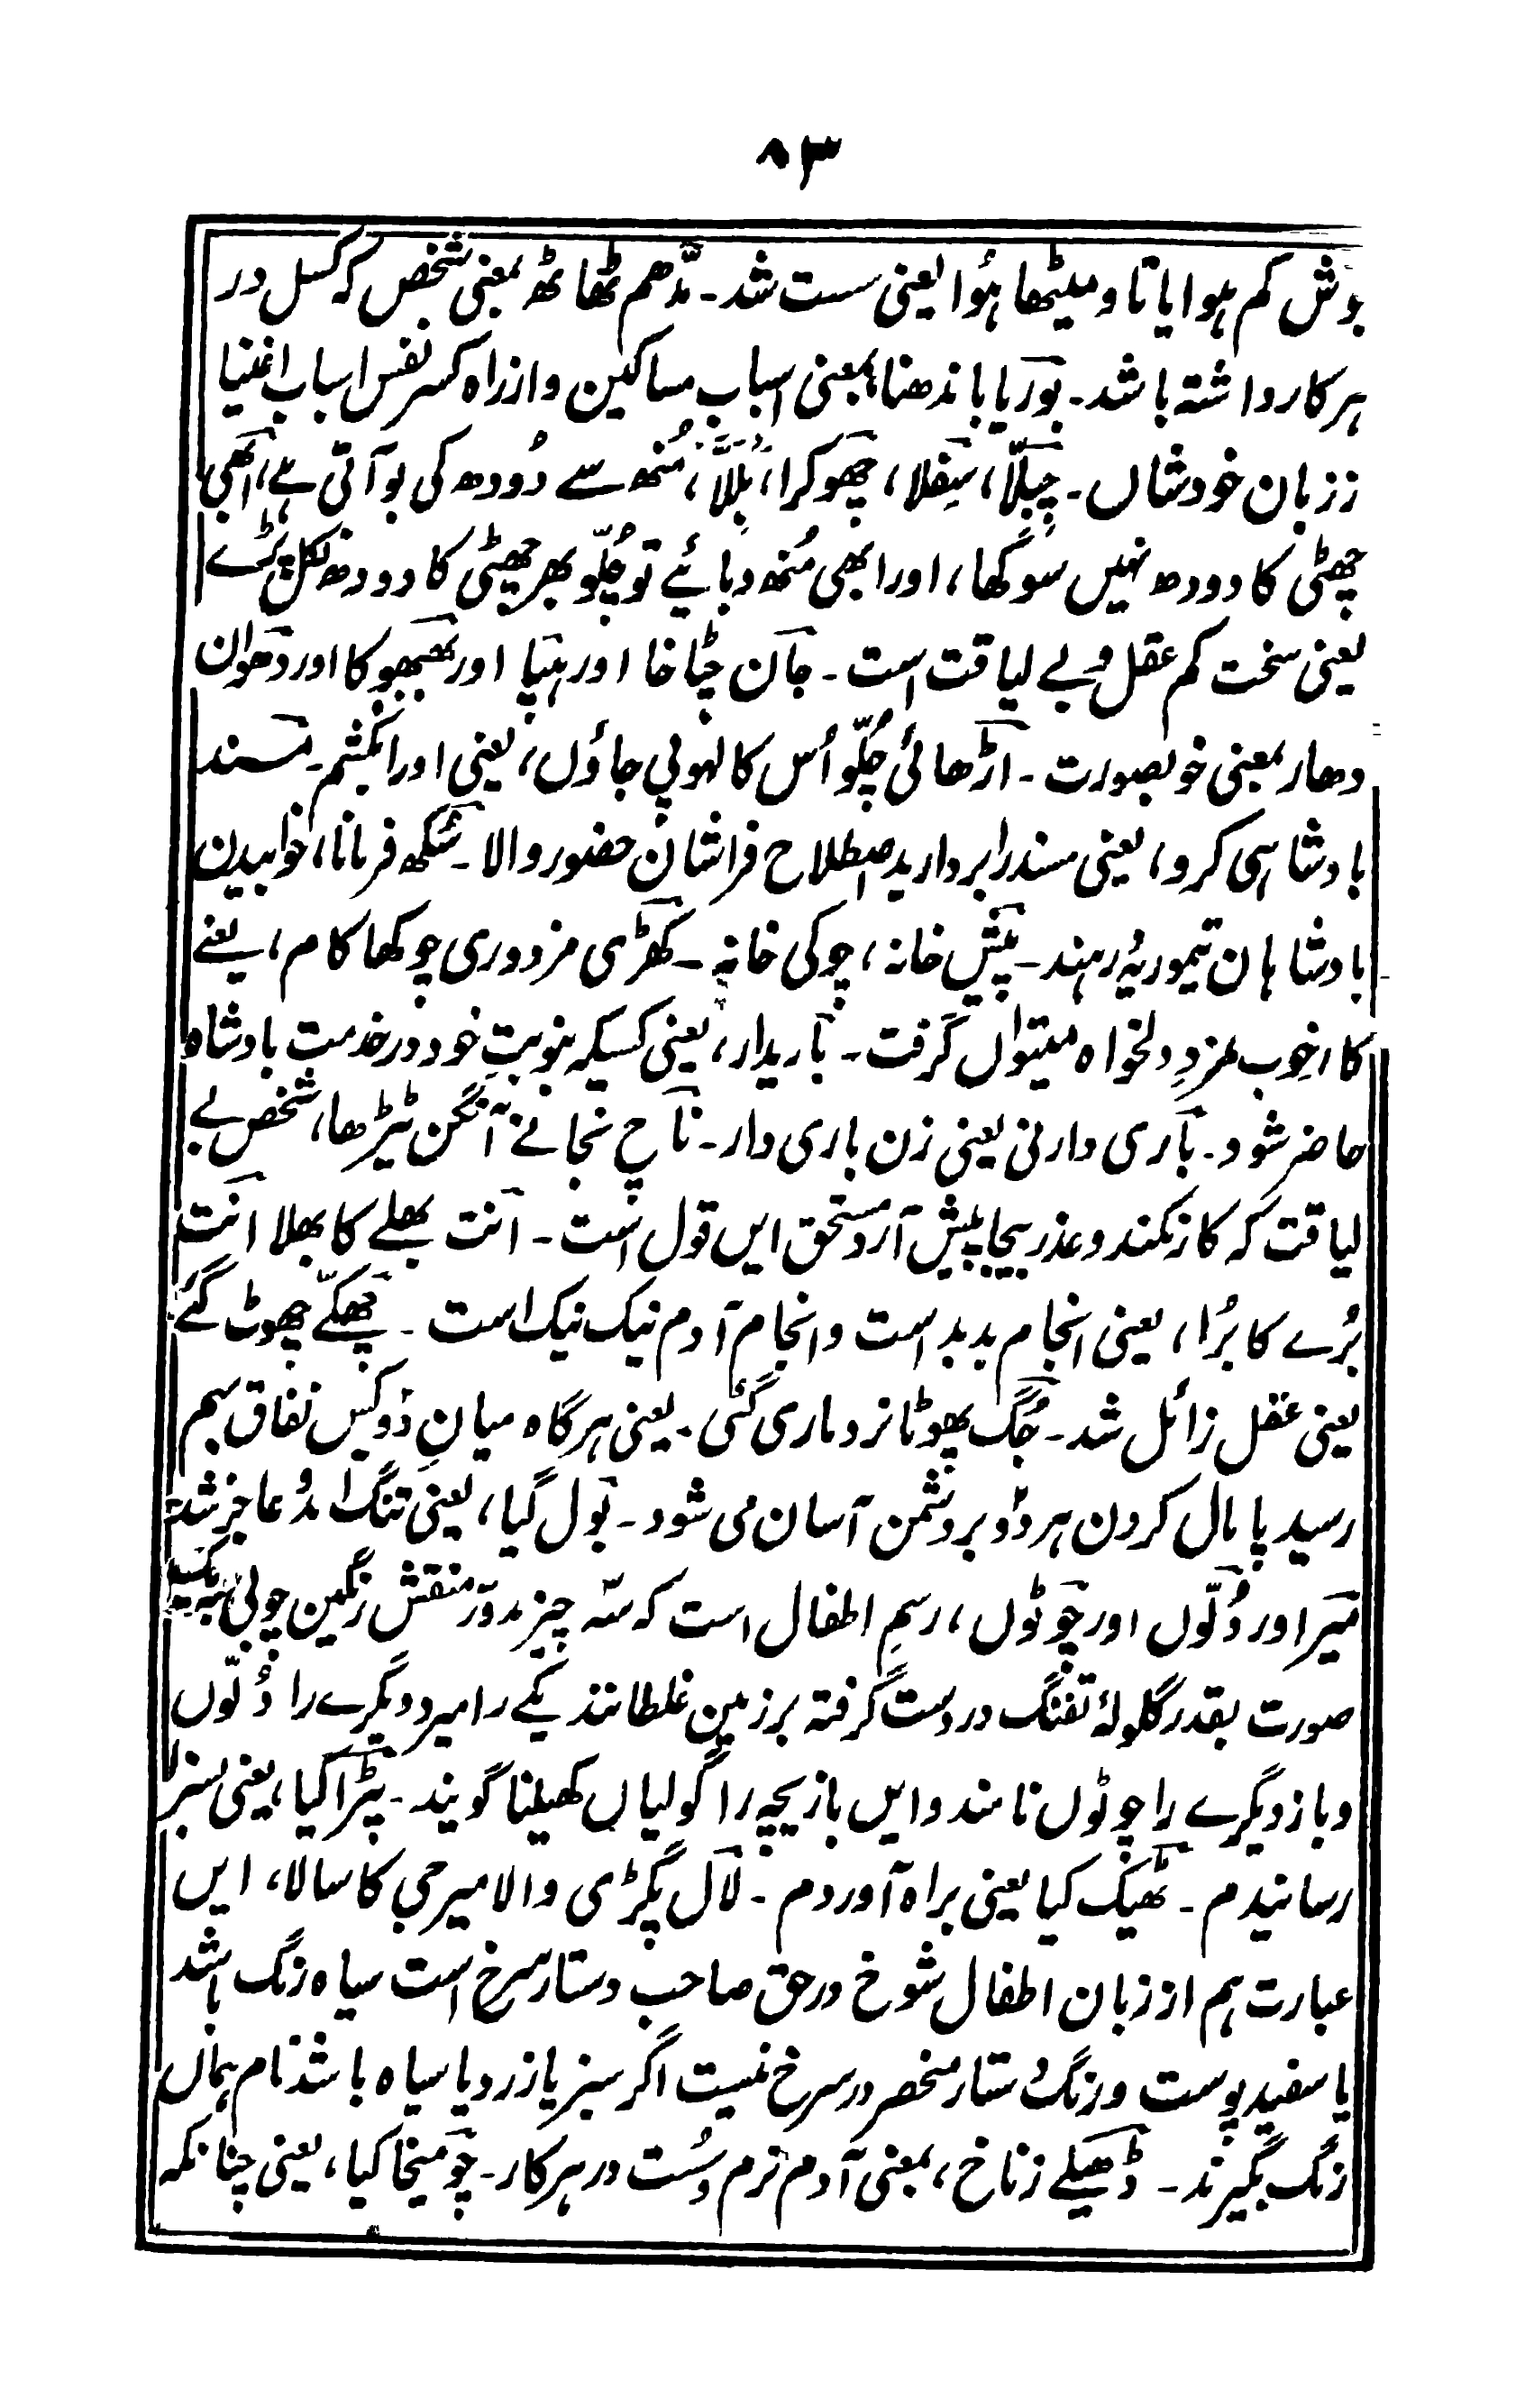 ۸۳
جوش کم ہوا یا تاو میٹھا ہُوا یعنی سست شد۔ مدّھم ٹھاٹھ بمعنی شخص کہ کسل در
ہر کار داشتہ باشد۔ بوریا باندھنا، بمعنی اسباب مساکین و از راہ کسر نفس اسباب اغنیا
ز زبان خود شاں۔ چِبِلّا، سِفلا، چھوکرا، بلِلّا، مُنھ سے دُودھ کی بو آتی ہے، ابھی
چھٹی کا دودھ نہیں سُوکھا، اور ابھی مُنھ دبائیے تو چُلّو بھر چھٹی کا دودھ نکل پڑے
یعنی سخت کم عقل و بے لیاقت است۔ جان چٹاخا اور ہتیا اور بھبھوکا اور دھواں
دھار بمعنی خوبصورت۔ اڑھائی چُلّو اُس کا لہو پی جاؤں، یعنی او را بکشم۔ مسند
بادشاہی کرو، یعنی مسند را بردارید اصطلاح فراشان حضور والا۔ سُکھ فرمانا، خوابیدن
بادشاہان تیموریۂ ہند۔ پیش خانہ، چوکی خانہ۔ کھڑی مزدوری چوکھا کام، یعنے
کار خوب بمزدِ دلخواہ میتواں گرفت۔ باریدار، یعنی کسیکہ بنوبتِ خود در خدمت بادشاہ
حاضر شود۔ باری دارنی یعنی زن باری دار۔ ناچ نجانے آنگن ٹیڑھا، شخص بے
لیاقت کہ کار نکند و عذر بیجا پیش آرد مستحق ایں قول است۔ انت بھلے کا بھلا انت
بُرے کا بُرا، یعنی انجام بد بد است و انجام آدم نیک نیک است۔ چھکّے چھوٹ گئے
یعنی عقل زائل شد۔ جُگ پھوٹا نرد ماری گئی۔ یعنی ہرگاہ میانِ دو کس نفاق بہم
رسید پامال کردن ہر دو بر دشمن آسان می شود۔ بول گیا، یعنی تنگ آمد و عاجز شد
میر اور دُلّوں اور چوٹوں، رسمِ اطفال است کہ سہ چیز مدوّر منقش رنگین چوبی بہ یک
صورت بقدر گلولۂ تفنگ در دست گرفتہ بر زمین غلطانند یکے را میر و دیگرے را دُلّوں
و باز دیگرے را چوٹوں نامند و ایں بازیچہ را گولیاں کھیلنا گویند۔ پٹرا کیا، یعنی بسزا
رسانیدم۔ ٹھیک کیا یعنی براہ آوردم۔ لال پگڑی والا میر جی کا سالا، ایں
عبارت ہم از زبان اطفال شوخ در حق صاحب دستار سرخ است سیاہ رنگ باشد
یا سفید پوست و رنگ دستار منحصر در سرخ نیست اگر سبز یا زرد یا سیاہ باشد نام ہماں
رنگ بگیرند۔ ڈھیلے زناخ، بمعنی آدم نرم و سُست در ہر کار۔ چومیخا کیا، یعنی چنانکہ